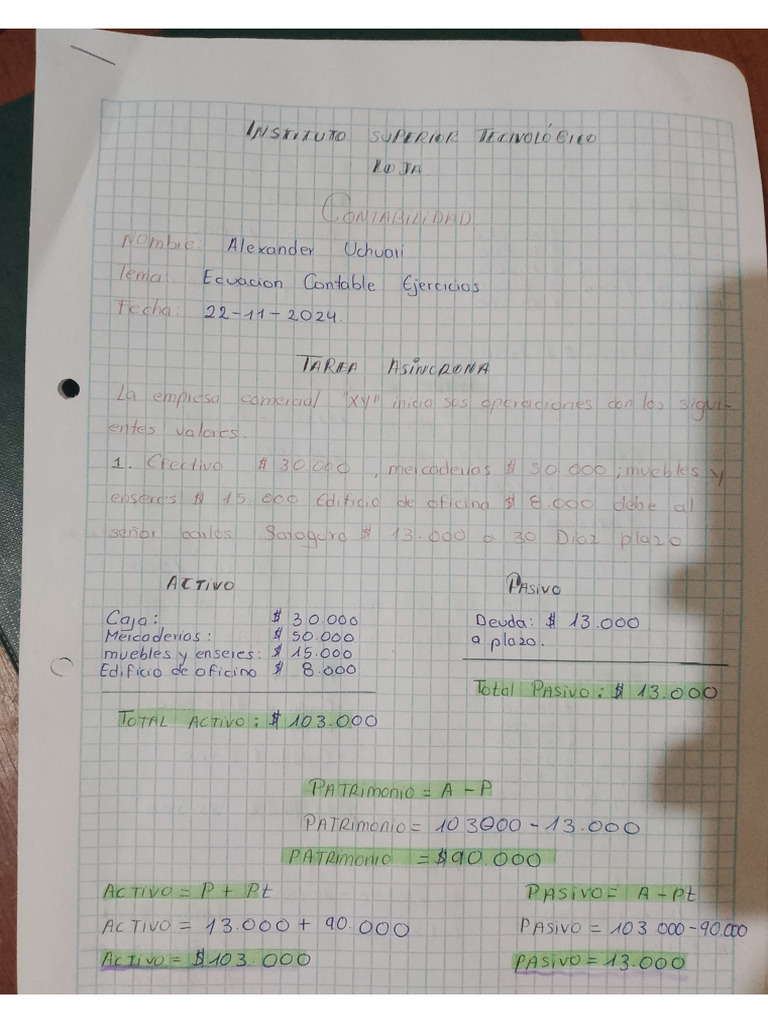 INSTITUTO SUPERIOR TECNOLÓGICO
LOJA
CONTABILIDAD
Nombre: Alexander Uchuari
Tema: Ecuacion Contable Ejercicios
Fecha: 22-11-2024.
TAREA ASINCRONA
La empresa comercial "XY" inicia sus operaciones con los sigui-
entes valores.
1. Efectivo $ 30.000, mercaderias $ 50.000; muebles y
enseres $ 15 000 Edificio de oficina $ 8.000 debe al
señor carlos Saraguro $ 13.000 a 30 Diaz plazo
ACTIVO
Caja: $ 30.000
Mercaderias: $ 50.000
muebles y enseres: $ 15.000
Edificio de oficina $ 8.000
TOTAL ACTIVO: $ 103.000
PASIVO
Deuda: $ 13.000
a plazo.
Total PASIVO: $ 13.000
PATRimonio = A - P
PATRimonio = 103000 - 13.000
PATRimonio = $90.000
ACTIVO = P + Pt
ACTIVO = 13.000 + 90.000
ACTIVO = $103.000
PASIVO = A - pt
PASIVO = 103 000 - 90.000
PASIVO = 13.000